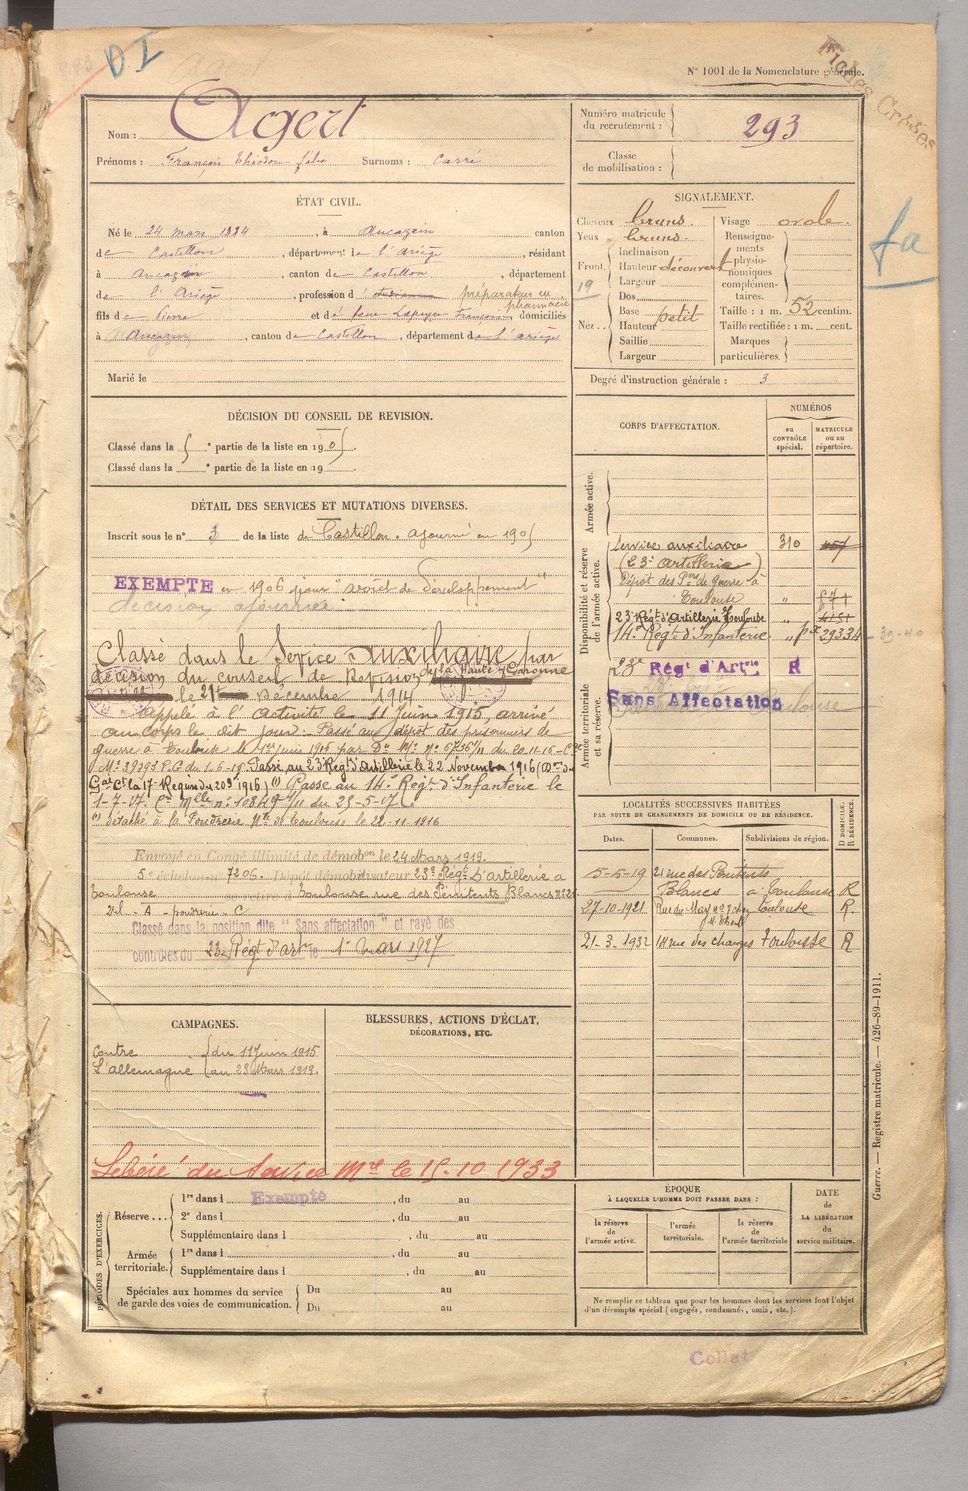 D I
N° 1001 de la Nomenclature générale.
Fiches Croisées
Nom : Agert
Prénoms : François Théodore félix Surnoms : Carré
Numéro matricule du recrutement : 293
Classe de mobilisation :
ÉTAT CIVIL.
Né le 24 mars 1884, à Aucazein canton
de Castillon, département de l'ariège, résidant
à Aucazein, canton de Castillon, département
de l'Ariège, profession d préparateur en pharmacie
fils de Pierre et de feue Lapeyre Françoise, domiciliés
à Aucazein, canton de Castillon, département de l'ariège
Marié le
SIGNALEMENT.
Cheveux bruns.
Yeux bruns.
Front. Inclinaison
Hauteur découvert
Largeur
19
Nez Dos
Base petit
Hauteur
Saillie
Largeur
Visage ovale.
Renseignements physionomiques complémentaires.
Taille : 1 m. 52 centim.
Taille rectifiée : 1 m. cent.
Marques particulières.
fa
Degré d'instruction générale : 3
DÉCISION DU CONSEIL DE REVISION.
Classé dans la 5e partie de la liste en 1905.
Classé dans la e partie de la liste en 19 .
DÉTAIL DES SERVICES ET MUTATIONS DIVERSES.
Inscrit sous le n° 3 de la liste de Castillon. ajourné en 1905
EXEMPTE en 1906 pour "arrêt de Développement"
décision ajournés.
Classé dans le Service auxiliaire par
décision du conseil de Revision de la Haute-Garonne
le 21 Décembre 1914
Appelé à l'activité le 11 Juin 1915, arrivé
au corps le dit jour. Passé au dépôt des prisonniers de
guerre à Toulouse le 1er Juin 1916 par Don Mle N° 6736/11 du 20-11-15 -
M° 39393 P.G. du 1.6-18. Passé au 23 Régt d'Artillerie le 22 Novembre 1916 (Don du
Gal Ct la 17e Région du 20 9bre 1916) (1) Passé au 14e Régt d'Infanterie le
1-7-17. Con Mlle n° 10849 /11 du 25-5-17.
(1) détaché à la Poudrerie Nle de Toulouse le 22-11-1916
Envoyé en Congé illimité de démobon le 24 Mars 1919.
5e échelon n° 7206. Dépôt démobilisateur 23e Régt d'artillerie à
Toulouse se retire à Toulouse rue des Pénitents Blancs n° 21
Dél - A - poudrerie - C
Classé dans la position dite "Sans affectation" et rayé des
contrôles du 23e Régt d'artie le 1er Mars 1927
CORPS D'AFFECTATION.
NUMÉROS
au CONTRÔLE spécial.
MATRICULE ou au répertoire.
Armée active.
Disponibilité et réserve de l'armée active.
Service auxiliaire 310
(23e artillerie)
Dépôt des Prs de Guerre à
Toulouse "
23e Régt d'Artillerie Toulouse "
14e Régt d'Infanterie " 29334 - 39-40
Armée territoriale et sa réserve.
23e Régt d'Artie R
Sans Affectation
LOCALITÉS SUCCESSIVES HABITÉES
PAR SUITE DE CHANGEMENTS DE DOMICILE OU DE RÉSIDENCE.
Dates. Communes. Subdivisions de région. D DOMICILE. R RÉSIDENCE.
5-5-19 21 rue des Penitents
Blancs à Toulouse R
27-10-1921 Rue du May n° 3 chez Toulouse R.
21-3-1932 14 rue des changes Toulouse R
CAMPAGNES.
Contre du 11 Juin 1915
L'allemagne au 23 Mars 1919.
BLESSURES, ACTIONS D'ÉCLAT,
DÉCORATIONS, ETC.
Libéré du Service Mre le 15-10 1933
PÉRIODES D'EXERCICES.
Réserve... 1re dans l Exempté , du au
2e dans l , du au
Supplémentaire dans l , du au
Armée territoriale. 1re dans l , du au
Supplémentaire dans l , du au
Spéciales aux hommes du service
de garde des voies de communication. Du au
Du au
ÉPOQUE
À LAQUELLE L'HOMME DOIT PASSER DANS :
la réserve de l'armée active.
l'armée territoriale.
la réserve de l'armée territoriale
DATE de LA LIBÉRATION du service militaire.
Ne remplir ce tableau que pour les hommes dont les services font l'objet
d'un décompte spécial (engagés, condamnés, omis, etc.).
Guerre. — Registre matricule. — 426-89-1911.
Collat